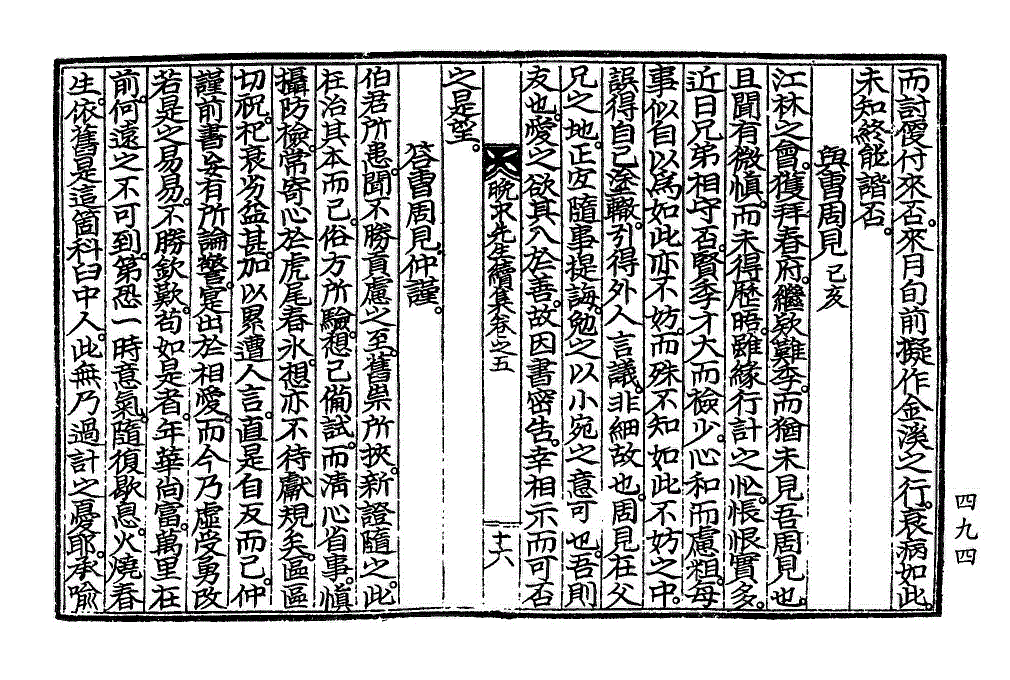 而討便付來否來月旬前擬作金溪之行衰病如此
未知終能諧否
與曺周見己亥
江林之會獲拜春府繼欵難季而猶未見吾周見也
且聞有微愼而未得歷晤雖緣行計之忙悵恨實多
近日兄弟相守否賢季才大而檢少心和而慮粗每
事似自以爲如此亦不妨而殊不知如此不妨之中
誤得自己塗轍引得外人言議非細故也周見在父
兄之地正宜隨事提誨勉之以小宛之意可也吾則
友也愛之欲其入於善故因書密告幸相示而可否
晩求先生續集卷之五
十六
之是望
答曺周見仲謹
伯君所患聞不勝貢慮之至舊祟所挾新證隨之此
枉治其本而已俗方所驗想已備試而淸心省事愼
攝防檢常寄心於虎尾春氷想亦不待獻規矣區區
切祝祀衰劣益甚加以累遭人言直是自反而已仲
謹前書妄有所論警寔出於相愛而今乃虛受勇改
若是之易易不勝欽歎苟如是者年華尙富萬里在
前何遠之不可到第恐一時意氣隨復歇息火燒春
生依舊是這箇科臼中人此無乃過計之憂耶承喩
四九四